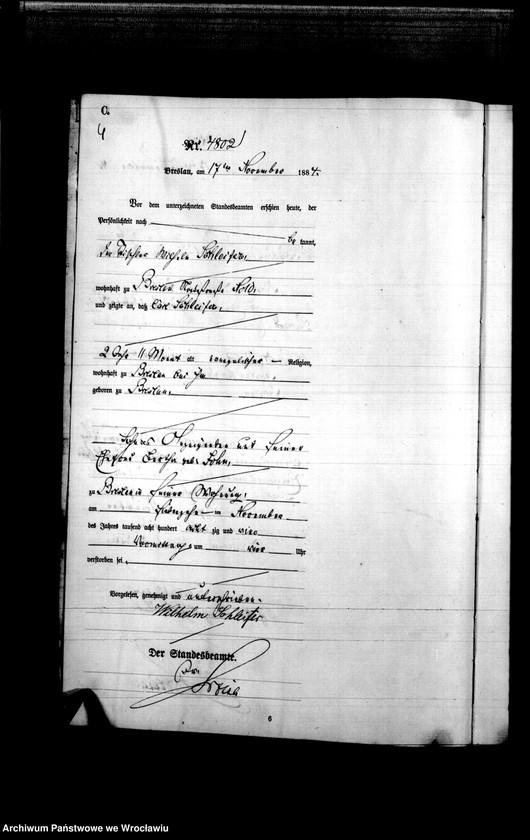 C.
4
Nr. 4802
Breslau, am 17ten November 1884.
Vor dem unterzeichneten Standesbeamten erschien heute, der
Persönlichkeit nach
be kannt,
der Tischler Wilhelm Schleifer,
wohnhaft zu Breslau
und zeigte an, daß Carl Schleifer,
2 Jahr 11 Monat alt evangelischer Religion,
wohnhaft zu Breslau bei ihm
geboren zu Breslau,
Sohn des Anzeigenden und seiner
Ehefrau Bertha geb.
zu Breslau in seiner Wohnung,
am November
des Jahres tausend acht hundert acht zig und vier
Vormittags um vier Uhr
verstorben sei.
Vorgelesen, genehmigt und unterschrieben.
Wilhelm Schleifer
Der Standesbeamte.
6
Archiwum Państwowe we Wrocławiu